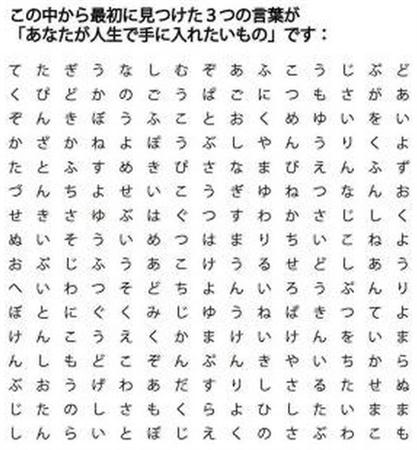 この中から最初に見つけた３つの言葉が
「あなたが人生で手に入れたいもの」です：
て た ぎ う な し む ぞ あ ふ こ う じ ぷ ど
く び ど か の ご う ぱ ご に つ も さ が あ
ぞ ん き ぼ う ふ こ と お く め ゆ い を い
か ざ か ね よ ぽ う ぶ し や ん う り く よ
た と ふ す め き ぴ さ な ま び え ん ふ ず
づ ん ち よ せ い こ う ぎ ゆ ね つ な ん お
せ き さ ゆ ぶ は ぐ つ す わ か さ じ し く
ぬ い そ う い め つ は ま り ち い こ ね よ
お ぷ じ ふ う あ こ け う る せ ど し あ う
へ い わ つ そ ど ち よ ん い ろ う ぷ ん り
ぼ と に ぐ く み じ ゆ う ね ば き つ て よ
け ん こ う え く か ま け い け ん を い ま
ん し も ど こ ぞ ん ぷ ん き や い ち か ら
ぶ お う げ わ あ だ す り し さ る た せ ぬ
じ た の し さ も く ら よ ひ し た い ま ま
し ん ら い と ぼ じ え く の さ ぶ わ こ も